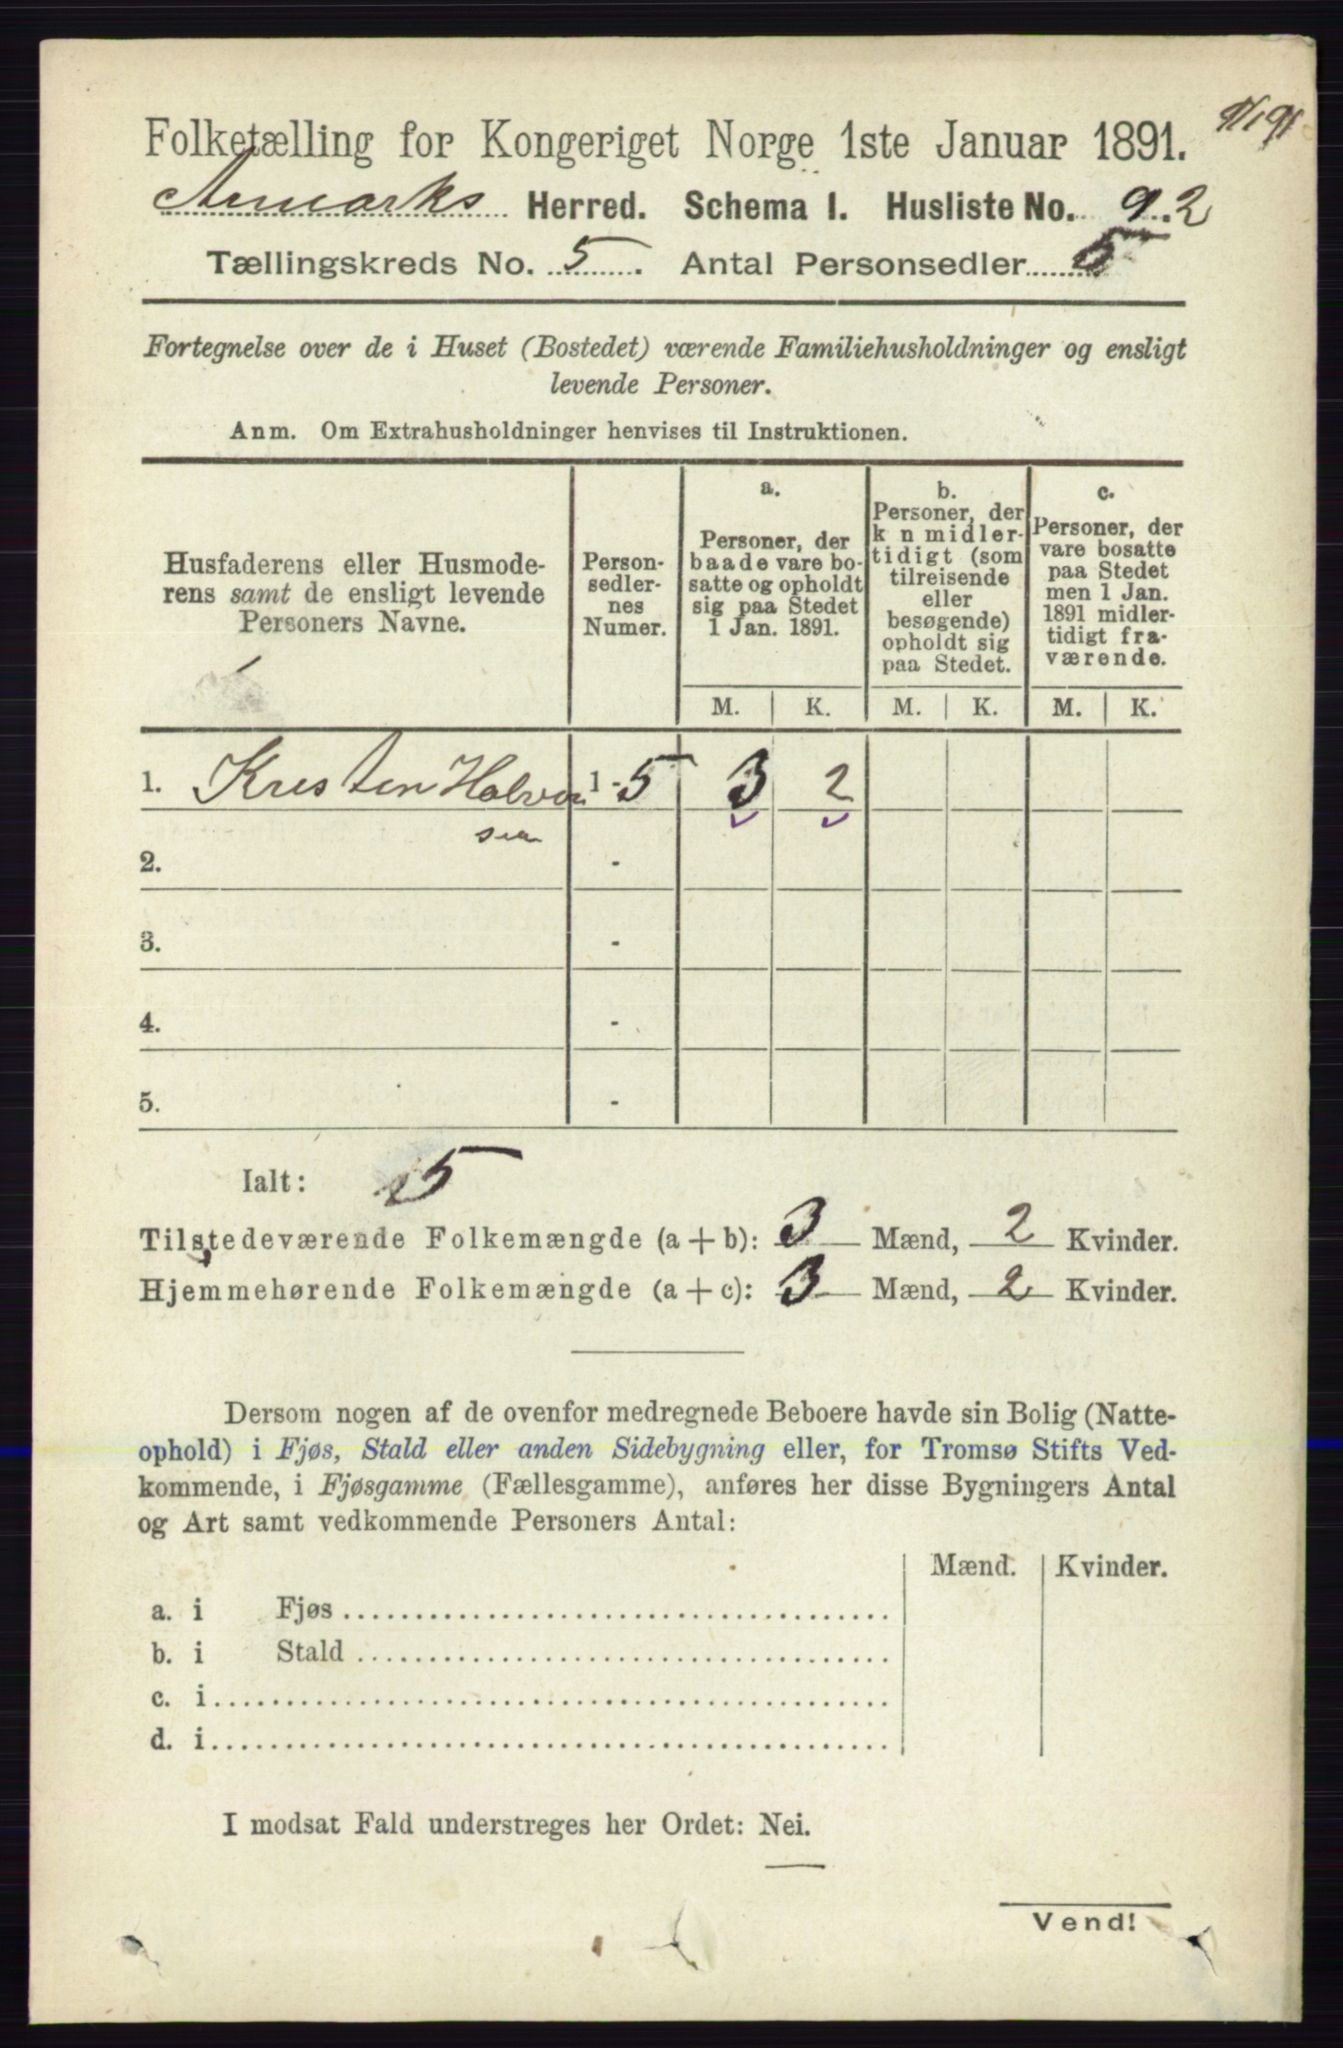 Folketælling for Kongeriget Norge 1ste Januar 1891.
Aremarks Herred. Schema I. Husliste No. 92
Tællingskreds No. 5. Antal Personsedler 5
Fortegnelse over de i Huset (Bostedet) værende Familiehusholdninger og ensligt
levende Personer.
Anm. Om Extrahusholdninger henvises til Instruktionen.
Husfaderens eller Husmode-
rens samt de ensligt levende
Personers Navne.
Person-
sedler-
nes
Numer.
a.
Personer, der
baade vare bo-
satte og opholdt
sig paa Stedet
1 Jan. 1891.
b.
Personer, der
k n midler-
tidigt (som
tilreisende
eller
besøgende)
opholdt sig
paa Stedet.
c.
Personer, der
vare bosatte
paa Stedet
men 1 Jan.
1891 midler-
tidigt fra-
værende.
M. K. M. K. M. K.
1. Kristen Halvor 1-5 3 2
sen
2. -
3. -
4. -
5. -
Ialt: 5
Tilstedeværende Folkemængde (a + b): 3 Mænd, 2 Kvinder.
Hjemmehørende Folkemængde (a + c): 3 Mænd, 2 Kvinder.
Dersom nogen af de ovenfor medregnede Beboere havde sin Bolig (Natte-
ophold) i Fjøs, Stald eller anden Sidebygning eller, for Tromsø Stifts Ved-
kommende, i Fjøsgamme (Fællesgamme), anføres her disse Bygningers Antal
og Art samt vedkommende Personers Antal:
Mænd. Kvinder.
a. i Fjøs
b. i Stald
c. i
d. i
I modsat Fald understreges her Ordet: Nei.
Vend!